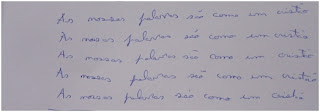 As nossas palavras são como um cristal
As nossas palavras são como um cristal
As nossas palavras são como um cristal
As nossas palavras são como um cristal
As nossas palavras são como um cristal